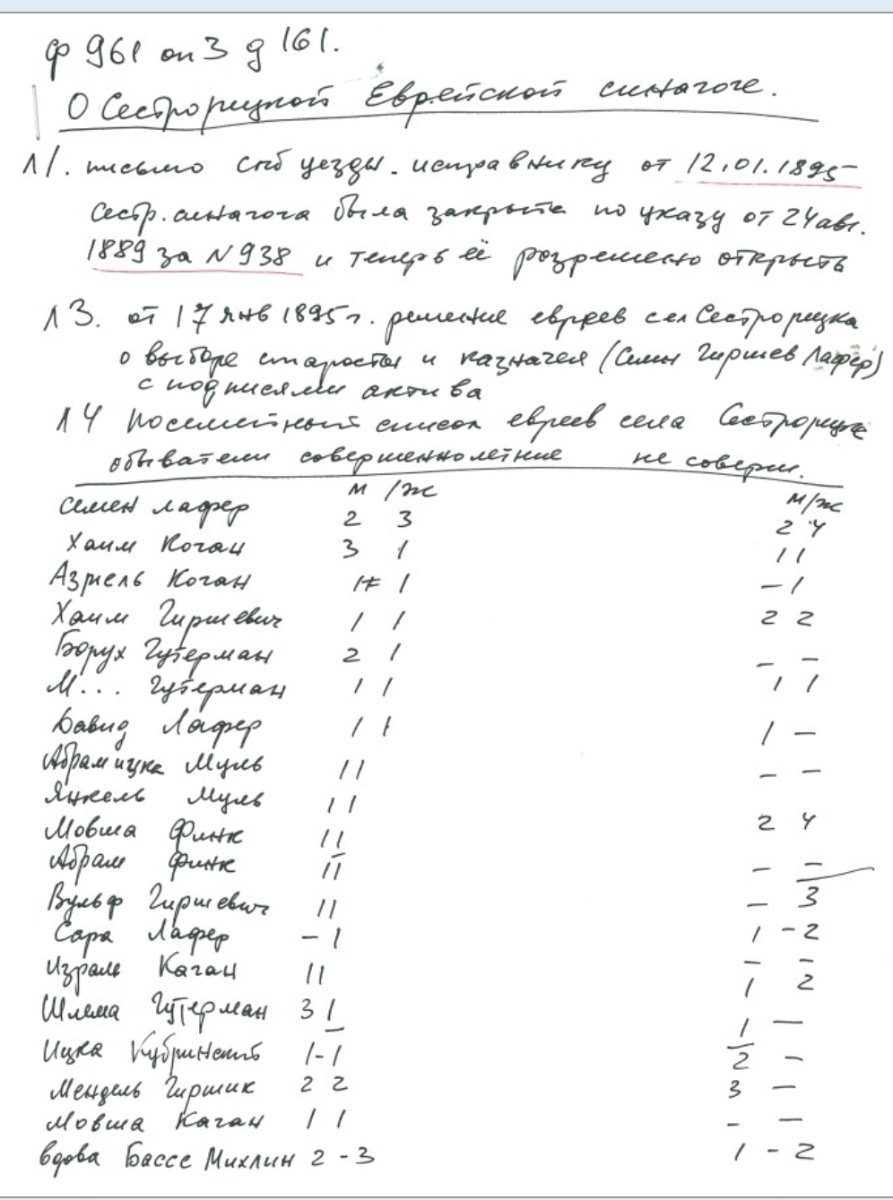 ф 961 оп 3 д 161.
О Сестрорецкой Еврейской синагоге.
л 1. письмо спб уездн. исправнику от 12.01.1895
Сестр. синагога была закрыта по указу от 24 авг.
1889 за N 938 и теперь её разрешено открыть
л 3. от 17 янв 1895 г. решение евреев сел Сестрорецка
о выборе старосты и казначея (Симы Гиршев Лафер)
с подписями актива
л 4 Посемейный список евреев села Сестрорецк
обыватели совершеннолетние не соверш.
м / ж м/ж
Семен Лафер 2 3 2 4
Хаим Коган 3 1 1 1
Азриель Коган 1 1 – 1
Хаим Гиршевич 1 1 2 2
Борух Гутерман 2 1 – –
М... Гутерман 1 1 1 1
Давид Лафер 1 1 1 –
Абрам ицка Муль 1 1 – –
Янкель Муль 1 1
Мовша Финк 1 1 2 4
Абрам Финк 1 1 – –
Вульф Гиршевич 1 1 – 3
Сара Лафер – 1 1 - 2
Израиль Каган 1 1 – –
1 2
Шлема Гутерман 3 1
1 —
Ицка Кубринский 1-1 2 –
Мендель Гиршик 2 2 3 —
Мовша Каган 1 1 – —
вдова Бассе Михлин 2 - 3 1 - 2